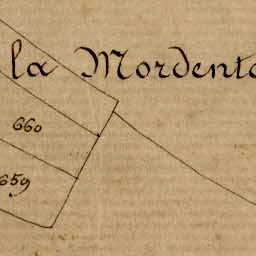 la Mordenta
660
659